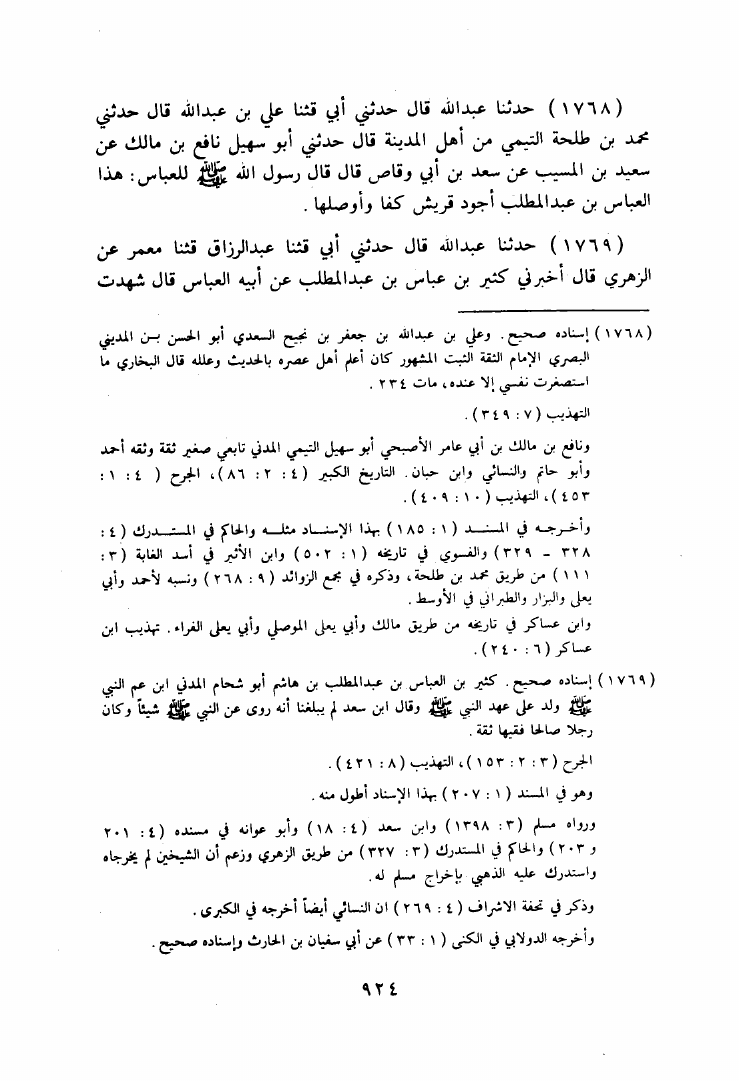 (١٧٦٨) حدثنا عبدالله قال حدثني أبي قثنا علي بن عبدالله قال حدثني
محمد بن طلحة التيمي من أهل المدينة قال حدثني أبو سهيل نافع بن مالك عن
سعيد بن المسيب عن سعد بن أبي وقاص قال قال رسول الله ﷺ للعباس: هذا
العباس بن عبدالمطلب أجود قريش كفا وأوصلها.
(١٧٦٩) حدثنا عبدالله قال حدثني أبي قثنا عبدالرزاق قثنا معمر عن
الزهري قال أخبرني كثير بن عباس بن عبدالمطلب عن أبيه العباس قال شهدت
(١٧٦٨) إسناده صحيح. وعلي بن عبدالله بن جعفر بن نجيح السعدي أبو الحسن بن المديني
البصري الإمام الثقة الثبت المشهور كان أعلم أهل عصره بالحديث وعلله قال البخاري ما
استصغرت نفسي إلا عنده، مات ٢٣٤.
التهذيب (٧: ٣٤٩).
ونافع بن مالك بن أبي عامر الأصبحي أبو سهيل التيمي المدني تابعي صغير ثقة وثقه أحمد
وأبو حاتم والنسائي وابن حبان. التاريخ الكبير (٤: ٢: ٨٦)، الجرح (٤: ١:
٤٥٣)، التهذيب (١٠: ٤٠٩).
وأخرجه في المسند (١: ١٨٥) بهذا الإسناد مثله والحاكم في المستدرك (٤:
٣٢٨ - ٣٢٩) والفسوي في تاريخه (١: ٥٠٢) وابن الأثير في أسد الغابة (٣:
١١١) من طريق محمد بن طلحة، وذكره في مجمع الزوائد (٩: ٢٦٨) ونسبه لأحمد وأبي
يعلى والبزار والطبراني في الأوسط.
وابن عساكر في تاريخه من طريق مالك وأبي يعلى الموصلي وأبي يعلى الفراء. تهذيب ابن
عساكر (٦: ٢٤٠).
(١٧٦٩) إسناده صحيح. كثير بن العباس بن عبدالمطلب بن هاشم أبو شحام المدني ابن عم النبي
ﷺ ولد على عهد النبي ﷺ وقال ابن سعد لم يبلغنا أنه روى عن النبي ﷺ شيئاً وكان
رجلا صالحا فقيها ثقة.
الجرح (٣: ٢: ١٥٣)، التهذيب (٨: ٤٢١).
وهو في المسند (١: ٢٠٧) بهذا الإسناد أطول منه.
ورواه مسلم (٣: ١٣٩٨) وابن سعد (٤: ١٨) وأبو عوانه في مسنده (٤: ٢٠١
و ٢٠٣) والحاكم في المستدرك (٣: ٣٢٧) من طريق الزهري وزعم أن الشيخين لم يخرجاه
واستدرك عليه الذهبي بإخراج مسلم له.
وذكر في تحفة الاشراف (٤: ٢٦٩) ان النسائي أيضاً أخرجه في الكبرى.
وأخرجه الدولابي في الكنى (١: ٣٣) عن أبي سفيان بن الحارث وإسناده صحيح.
٩٢٤